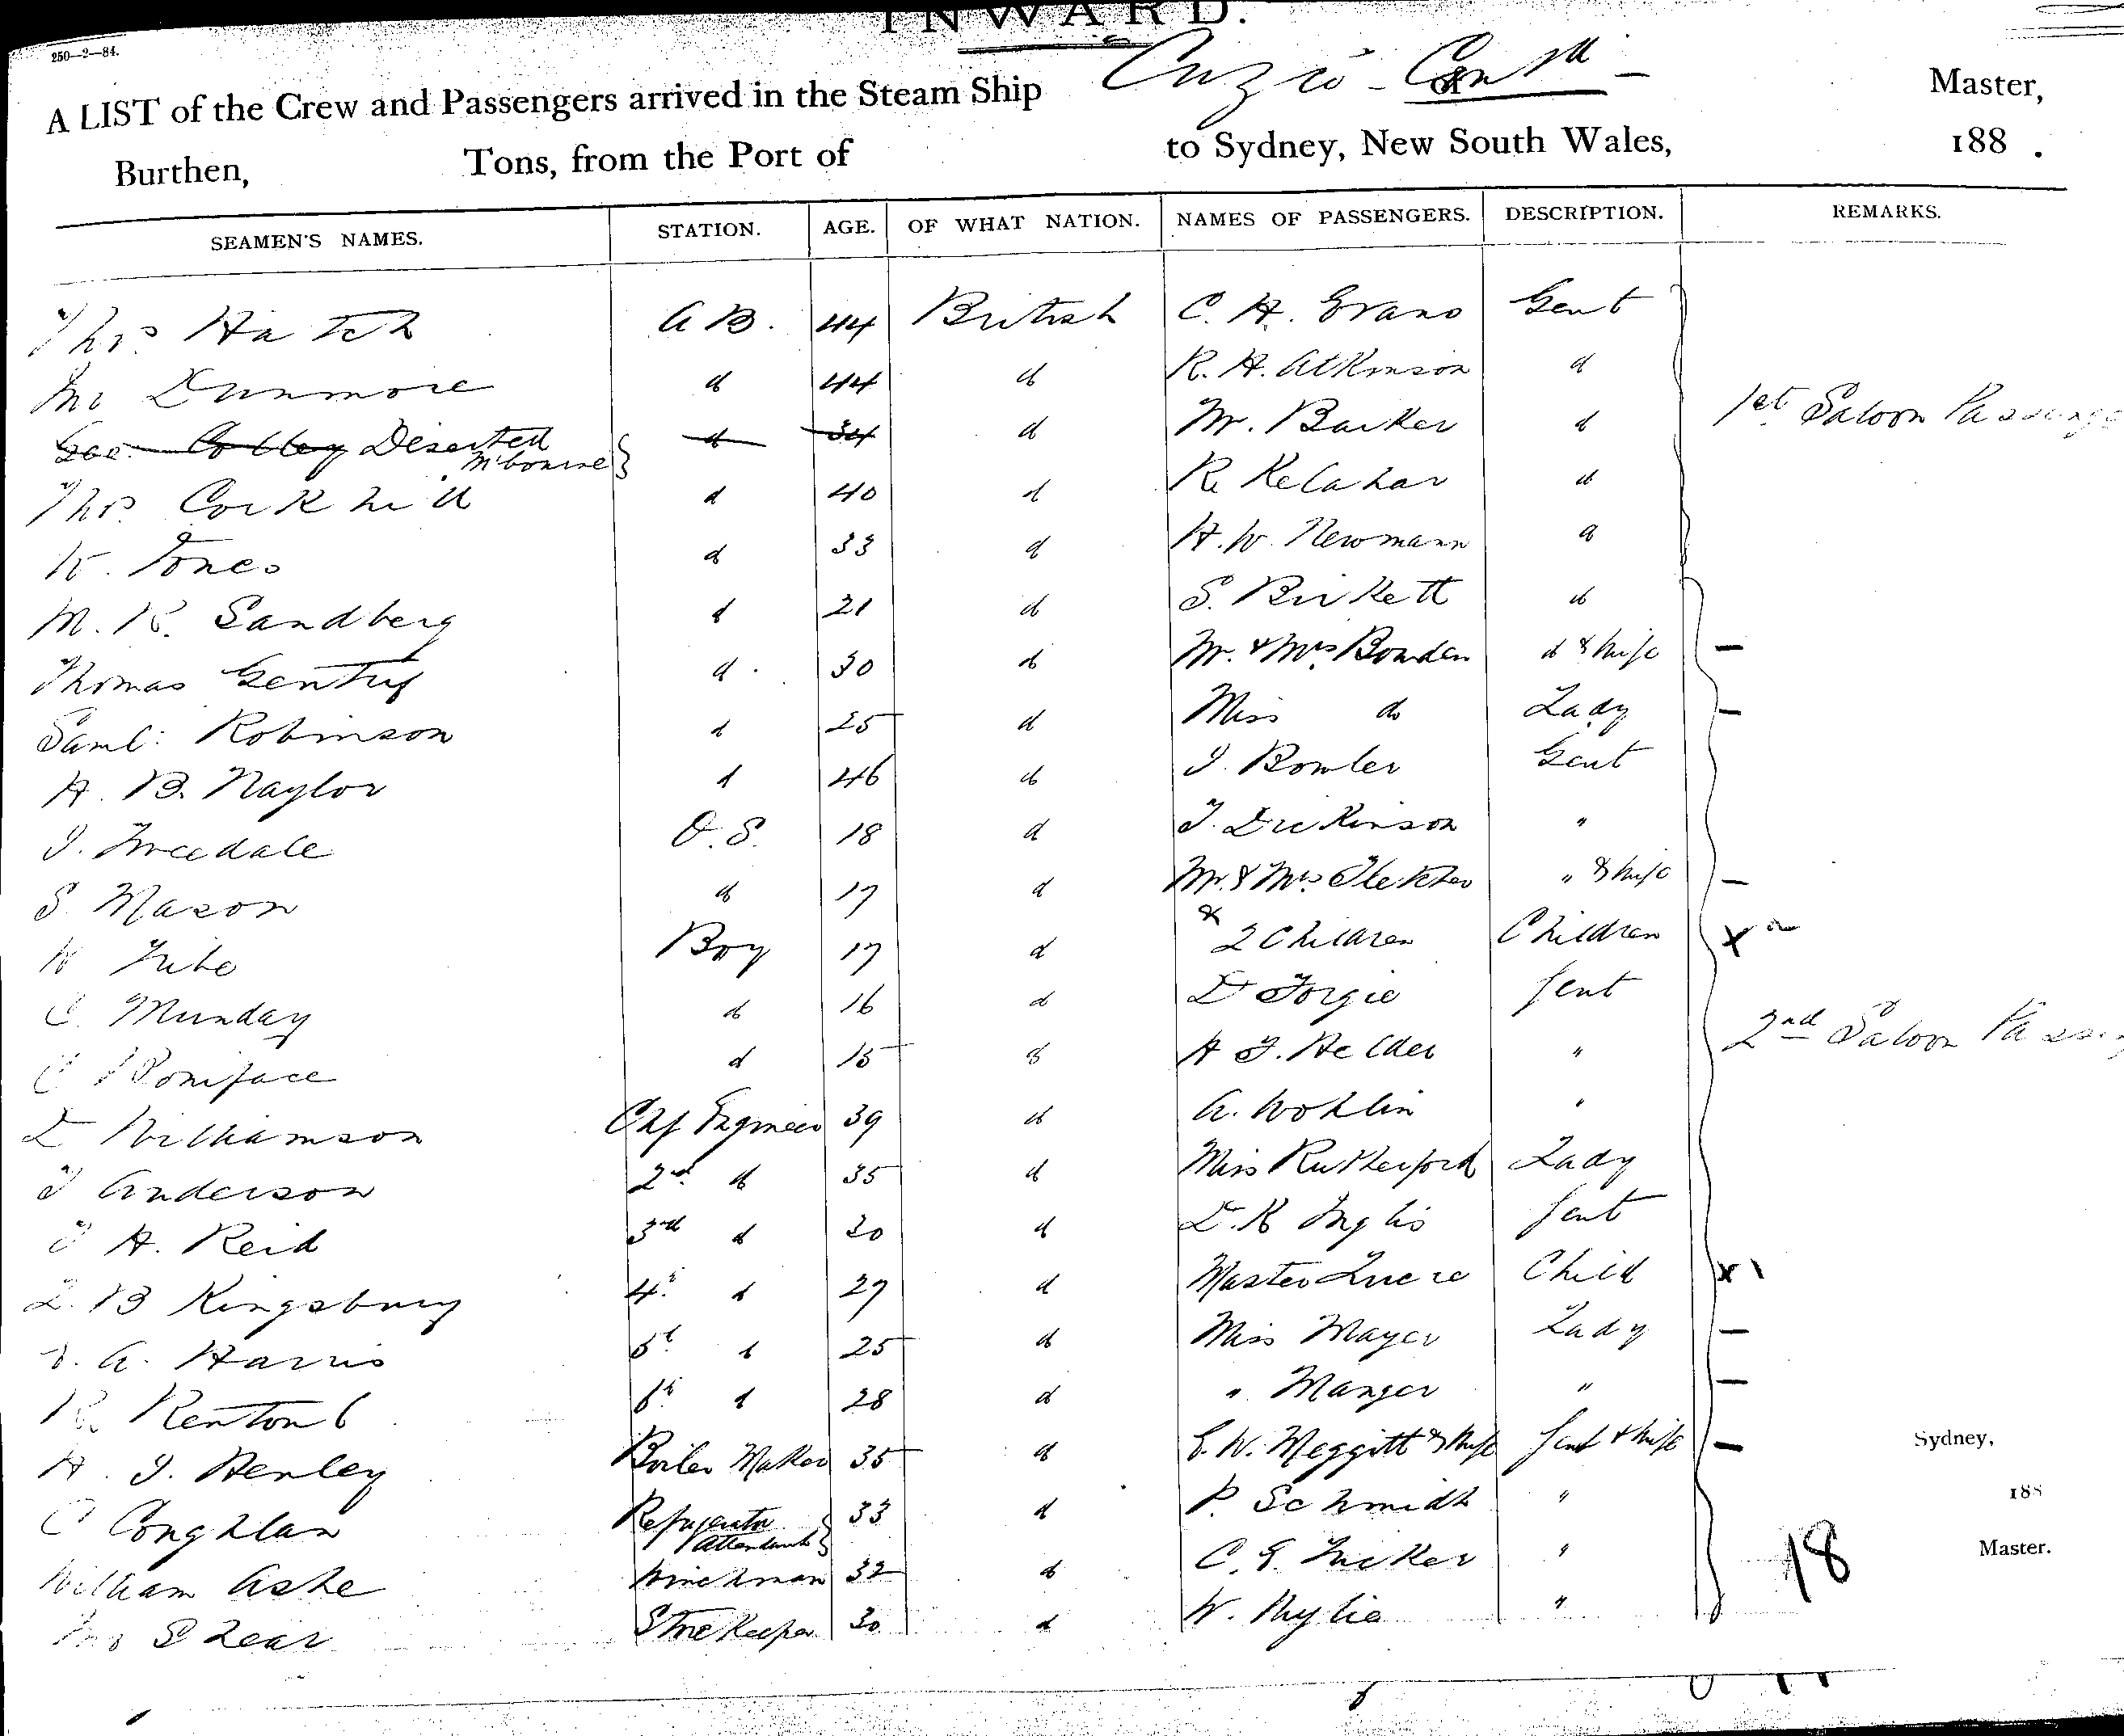 INWARD.
250—2—84.
A LIST of the Crew and Passengers arrived in the Steam Ship Cuzco - Contd - of Master,
Burthen, Tons, from the Port of to Sydney, New South Wales, 188 .
SEAMEN'S NAMES. STATION. AGE. OF WHAT NATION. NAMES OF PASSENGERS. DESCRIPTION. REMARKS.
Thos Hatch A B. 44 British C. H. Evans Gent
Jno Dunmore d 44 d R. H. Atkinson d
Geo. Colley Deserted M'bourne d 34 d Mr. Barker d 1st Saloon
Thos Corkhill d 40 d R Kelahar d
W. Jones d 33 d H. W. Newmann d
M. R. Sandberg d 21 d S. Birkett d
Thomas Gentry d. 30 d Mr. & Mrs Bowden d & Wife —
Saml: Robinson d 25 d Miss do Lady —
H. B. Naylor d 46 d J. Bowler Gent
J. Tweedale O. S. 18 d T. Dickinson "
S. Mason d 17 d Mr. & Mrs Fletcher " & Wife —
W Tribe Boy 17 d & 2 Children Children X
C. Munday d 16 d D Forgie Gent
C Boniface d 15 d H J. Helder " 2nd Saloon
D Williamson Chf Engineer 39 d A. Wohlin "
J Anderson 2nd d 35 d Miss Rutherford Lady
J H. Reid 3rd d 30 d D. K Inglis Gent
L. B Kingsbury 4th d 27 d Master Child X
J. A. Harris 5th d 25 d Miss Mayer Lady —
R. Renton 6th d 28 d " Manger " —
H. J. Henley Boiler Maker 35 d E. W. Meggitt & Wife Gent & Wife — Sydney,
C Coghlan Refrigerator Attendant 33 d P. Schmidt " 188
William Ashe Winchman 32 d C. E. Tucker " 18 Master.
Jno Shear Storekeeper 30 d W. Wylie "